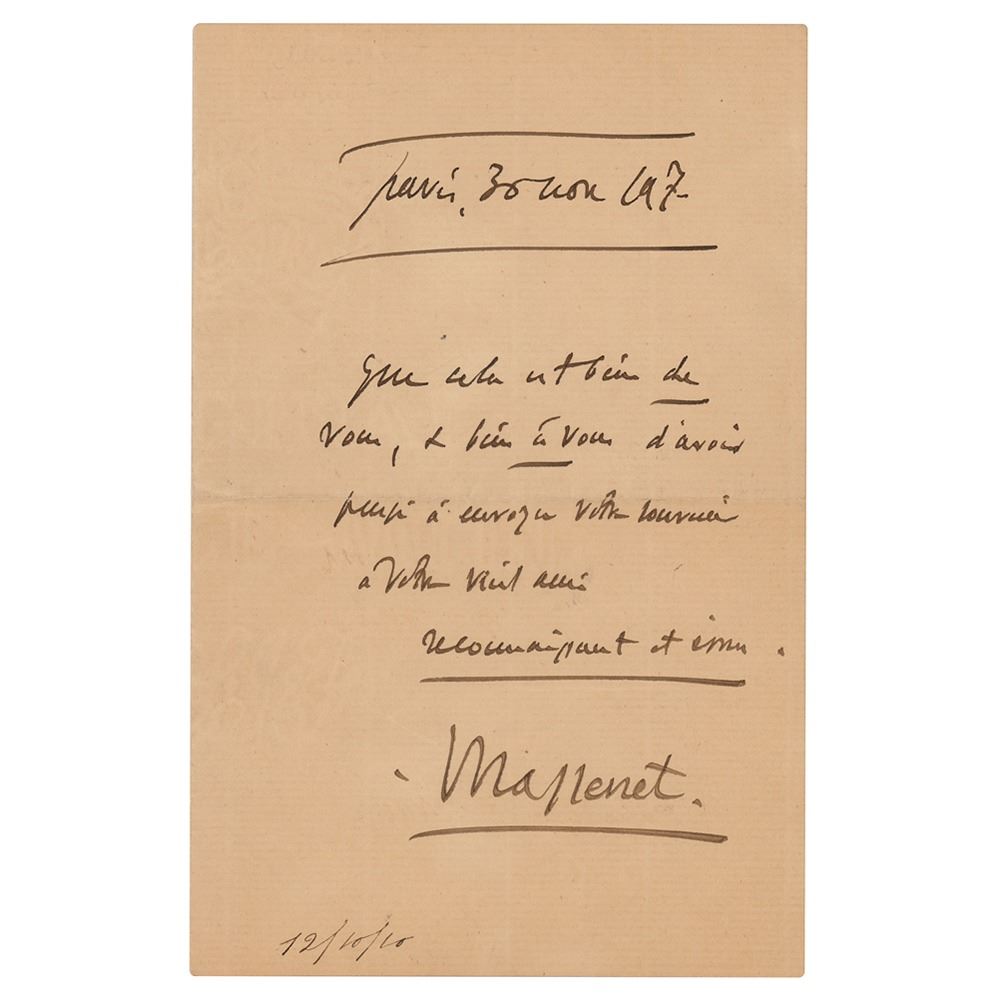 Paris, 30 nov /97
Que cela est bien de
vous, & bien à vous d'avoir
pensé à envoyer votre souvenir
à votre vieil ami
reconnaissant et ému.
Massenet.
12/10/10